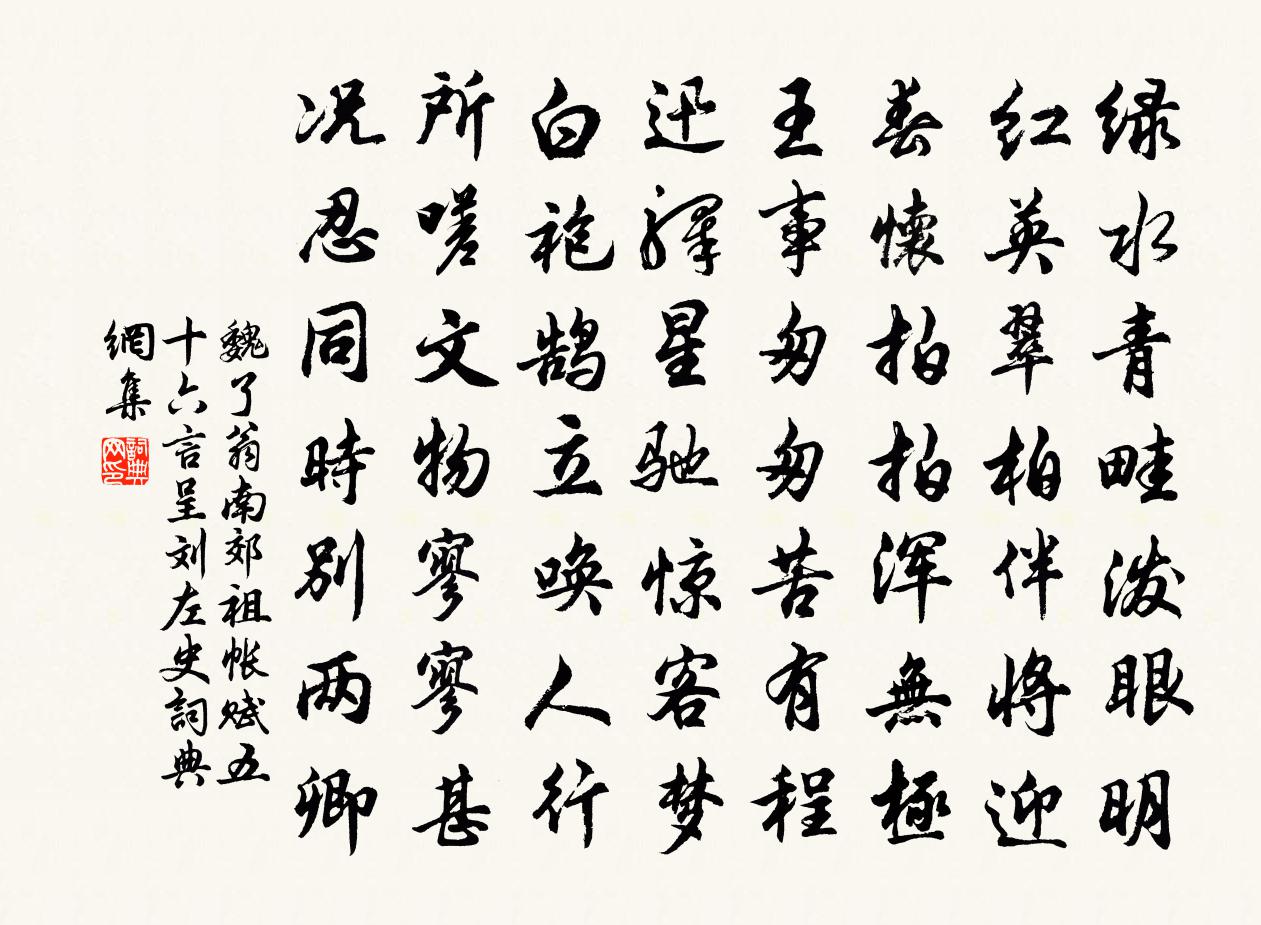 绿水青畦泼眼明
红英翠柏伴将迎
春懷拍拍浑無極
王事匆匆苦有程
迅驛星驰惊客梦
白袍鹄立唤人行
所嗟文物寥寥甚
况忍同時别两卿
魏了翁南郊祖帐赋五
十六言呈刘左史詞典
網集
詞典
网印